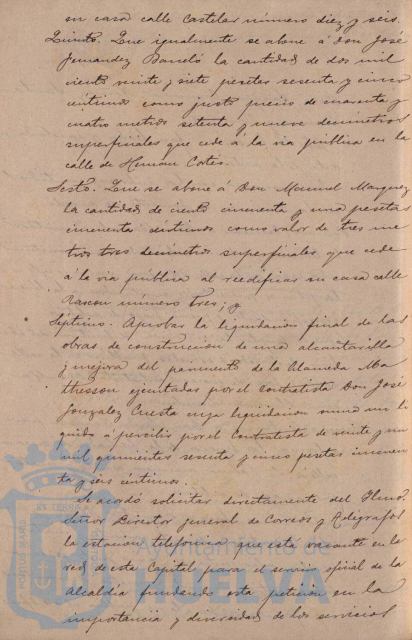 su casa calle Castelar número diez y seis.
Quinto. Que igualmente se abone á Don José
Fernandez Barceló la cantidad de dos mil
ciento veinte y siete pesetas sesenta y cinco
céntimos como justo precio de cuarenta y
cuatro metros setenta y nueve decimetros
superficiales que cede á la via pública en la
calle de Hernan Cortés.
Sesto. Que se abone á Don Manuel Marquez
la cantidad de ciento cincuenta y una pesetas
cincuenta centimos como valor de tres me
tros tres decimetros superficiales que cede
á la via pública al reedificar su casa calle
Rascon número tres; y
Séptimo. Aprobar la liquidacion final de las
obras de construccion de una alcantarilla
y mejora del pavimento de la Alameda Ma
thesson ejecutadas por el contratista Don José
Gonzalez Cuesta cuya liquidacion suma un lí
quido á percibir por el contratista de veinte y un
mil quinientas sesenta y cinco pesetas cincuen
ta y seis céntimos.
Se acordó solicitar directamente del Ilmo.
Señor Director general de Correos y Telégrafos
la estacion telefónica que está vacante en la
red de esta Capital para el servicio oficial de la
Alcaldía fundando esta peticion en la
importancia y diversidad de los servicios
PORTUS MARIS
ET TERRAE
Ayuntamiento de
HUELVA